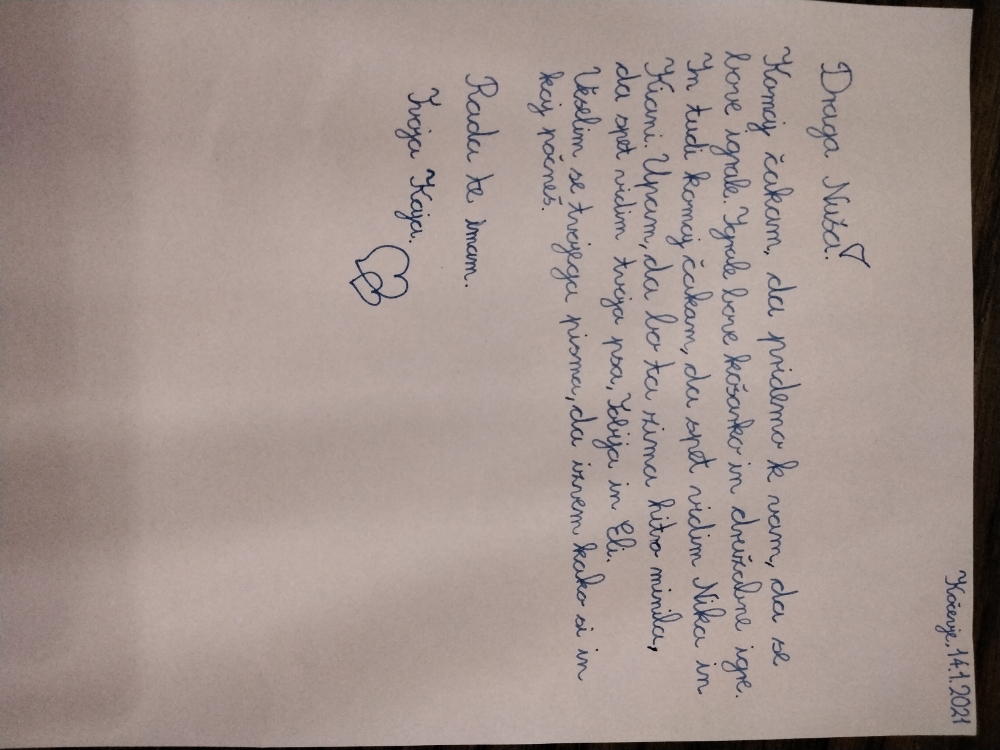 Kočevje, 14.1.2021
Draga Nuša.
Komaj čakam, da pridemo k vam, da se
bove igrale. Igrale bove košarko in družabne igre.
In tudi komaj čakam, da spet vidim Nika in
Kiami. Upam, da bo ta zima hitro minila,
da spet vidim tvoja psa, Tobija in Eli.
Veselim se tvojega pisma, da izvem kako si in
kaj počneš.
Rada te imam.
Tvoja Kaja.